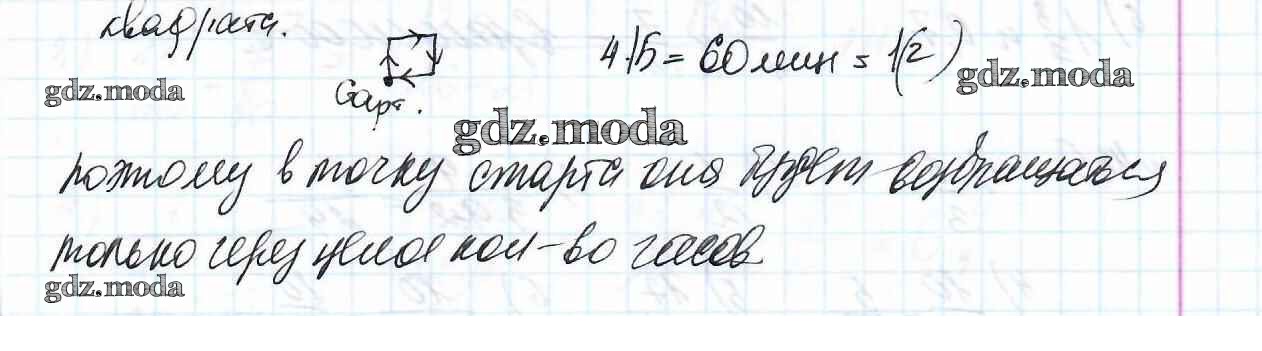 квадрата.
4·15 = 60 мин = 1(г)
gdz.moda
gdz.moda
Старт.
gdz.moda
поэтому в точку старта она будет возвращаться
только через целое кол-во часов
gdz.moda